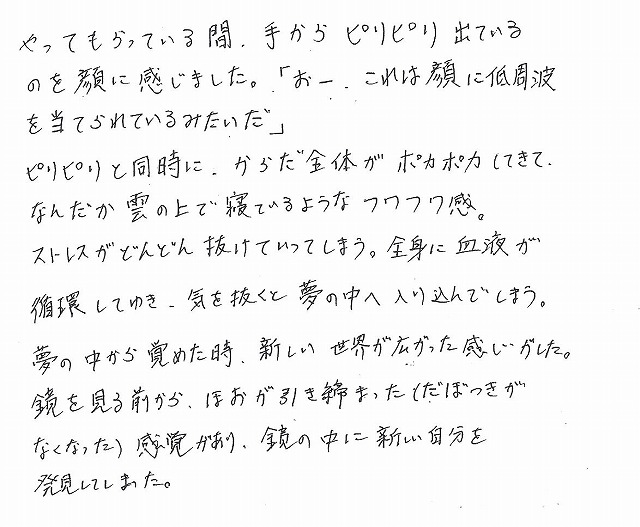 やってもらっている間、手から ピリピリ 出ている
のを顔に感じました。「おー、これは顔に低周波
を当てられているみたいだ」
ピリピリと同時に、からだ全体が ポカポカしてきて、
なんだか 雲の上で寝ているような フワフワ感。
ストレスがどんどん 抜けていってしまう。全身に血液が
循環してゆき、気を抜くと 夢の中へ入り込んでしまう。
夢の中から覚めた時、新しい世界が広がった感じがした。
鏡を見る前から、ほおが引き締まった(だぼつきが
なくなった)感覚があり、鏡の中に新しい自分を
発見してしまった。